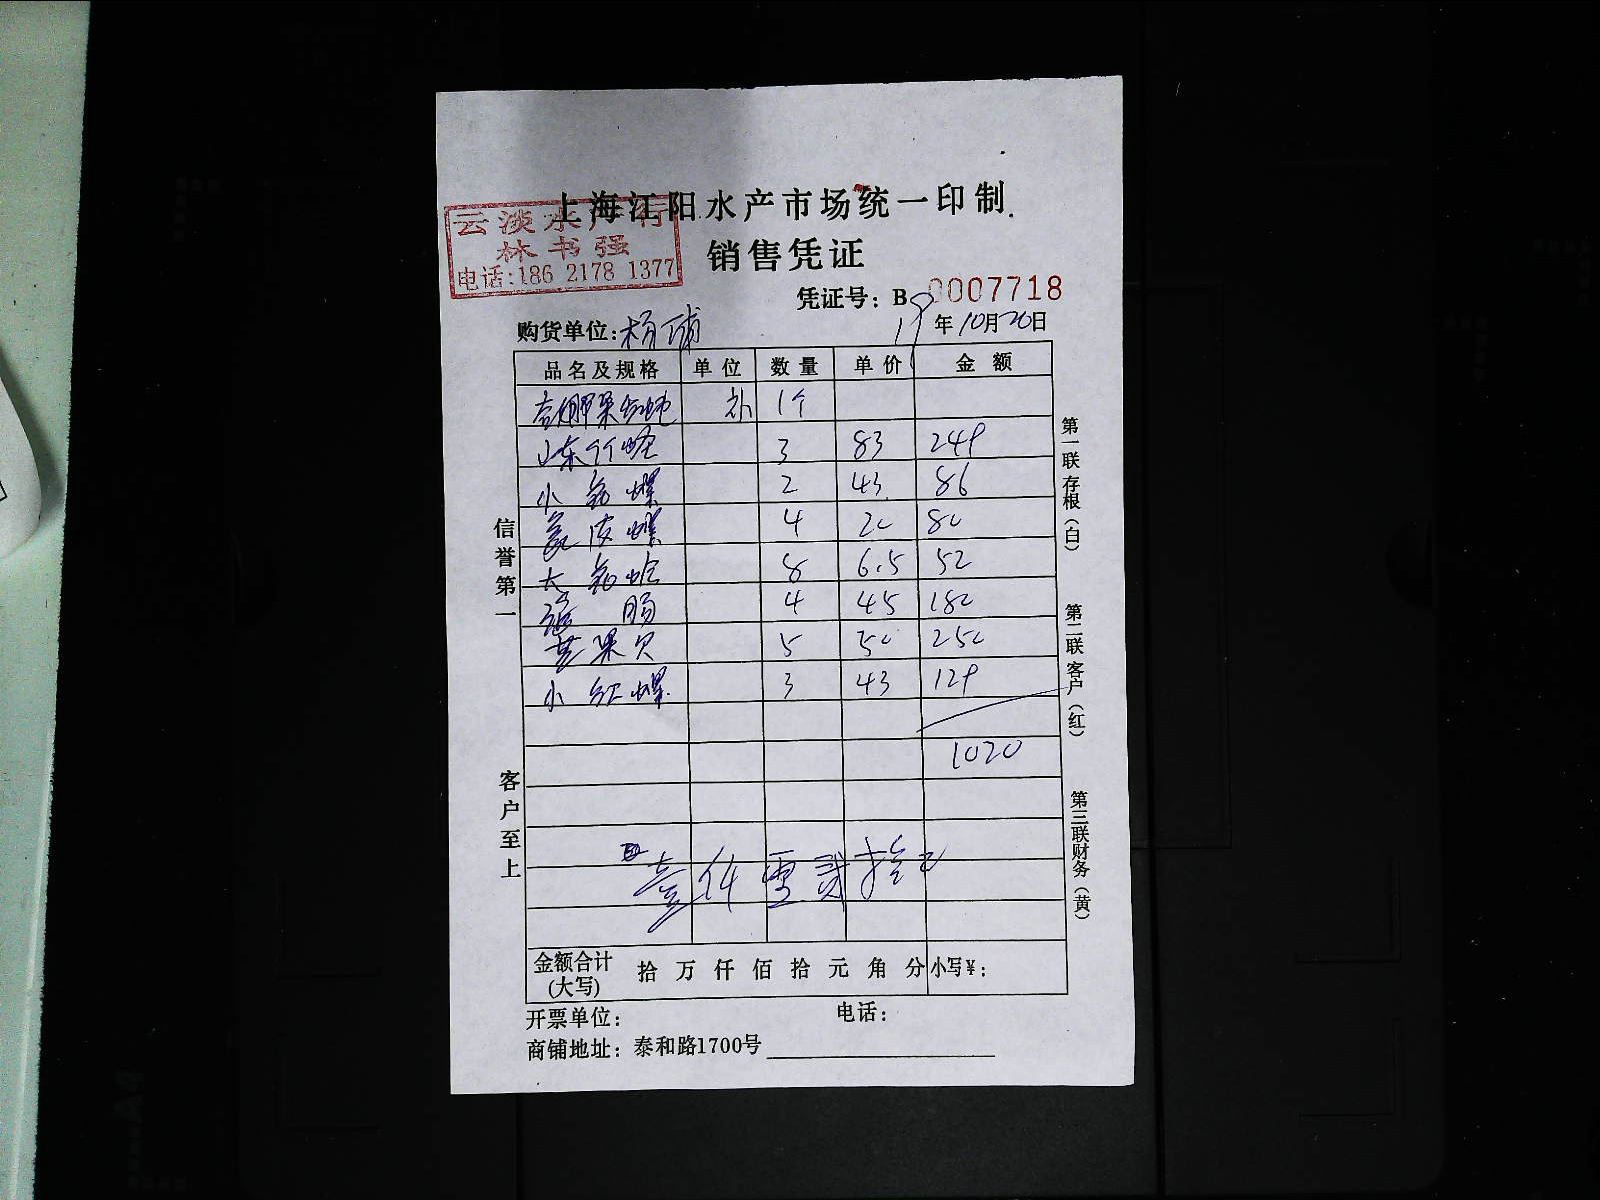 上海江阳水产市场统一印制
云淡水产行
林书强
电话:186 2178 1377
销售凭证
凭证号: B 0007718
购货单位: 杨浦 19年10月20日
品名及规格 单位 数量 单价 金额
补 1个
山东竹蛏 3 83 249
小 螺 2 43 86
皮螺 4 20 80
大 蛤 8 6.5 52
肠 4 45 180
苹果贝 5 50 250
小红螺 3 43 129
1020
壹仟零贰拾元
金额合计(大写) 拾 万 仟 佰 拾 元 角 分 小写¥:
开票单位: 电话:
商铺地址: 泰和路1700号
信誉第一
客户至上
第一联存根(白)
第二联客户(红)
第三联财务(黄)